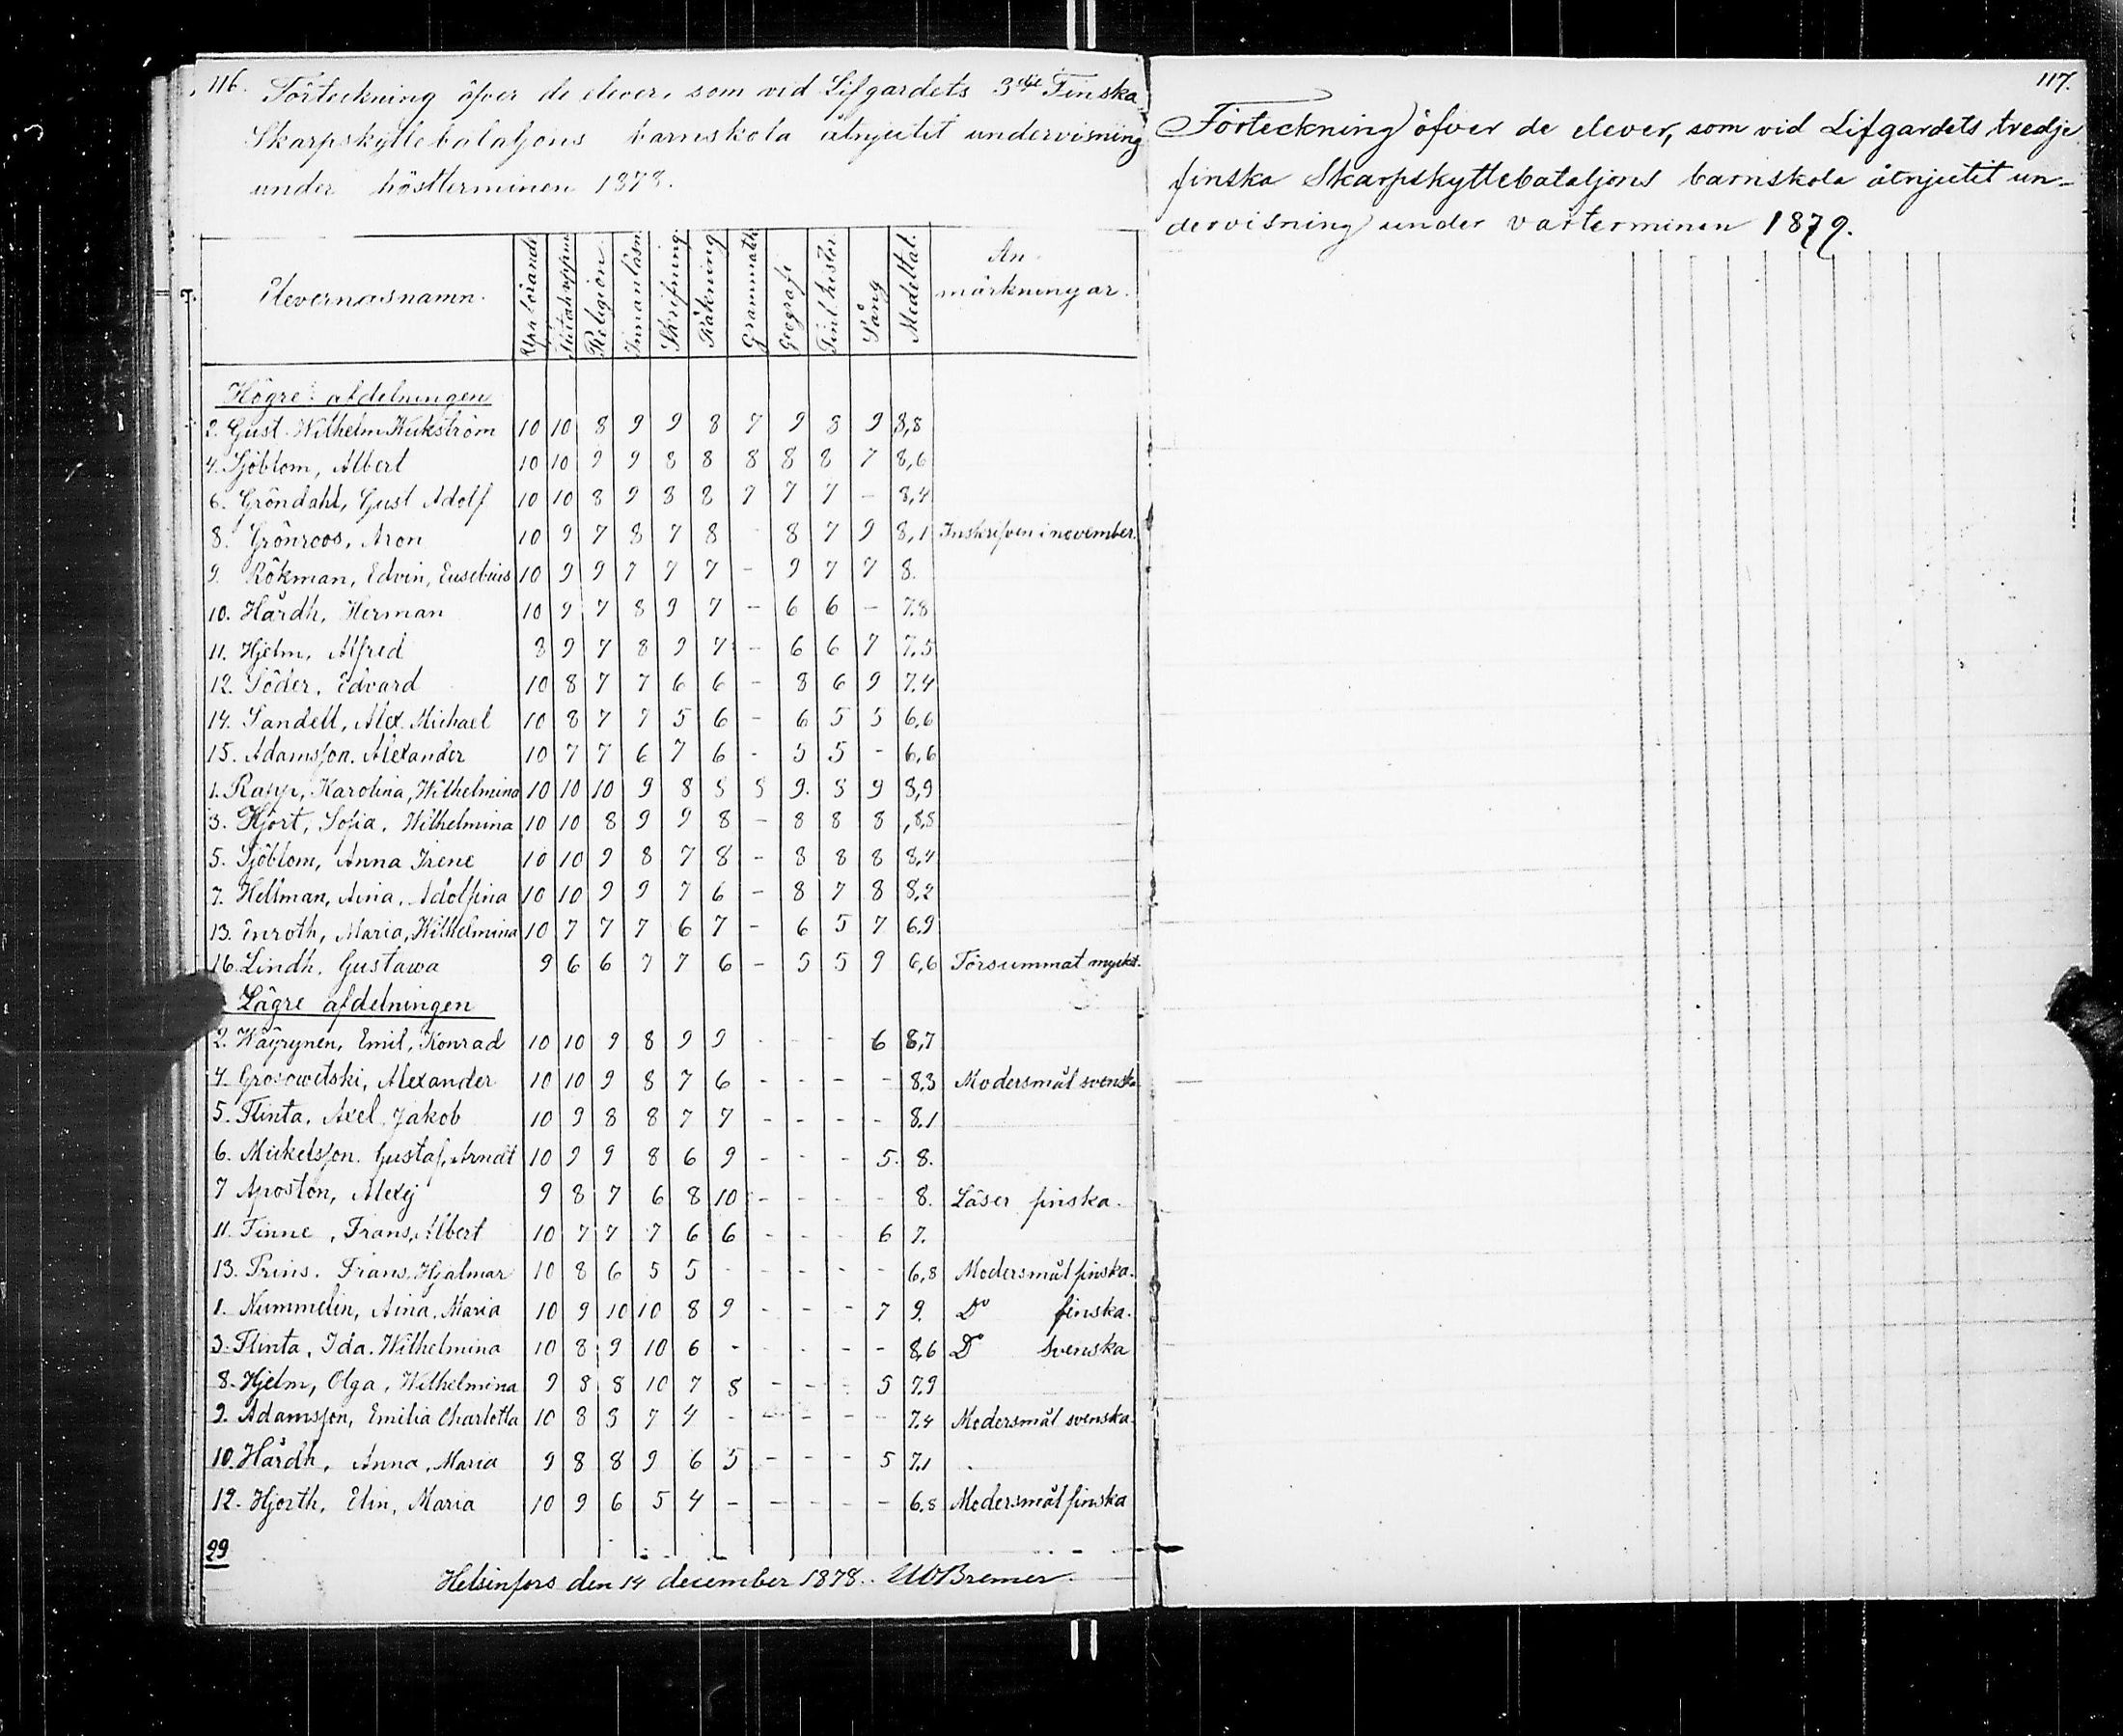 116.
Förteckning öfver de elever, som vid Lifgardets 3dje Finska
Skarpskyttebataljons barnskola åtnjutit undervisning
under höstterminen 1878.
Elevernas namn. Uppförande Religion Innanläsn. Skrifning Räkning Grammatik Geografi Finl. histor. Sång Medeltal. An-
märkningar.
Högre afdelningen
2. Gust. Wilhelm Wickström 10 10 8 9 9 8 7 9 8 9 8,8
4. Sjöblom, Albert 10 10 9 9 8 8 8 8 8 7 8,6
6. Gröndahl, Gust Adolf 10 10 8 9 8 8 7 7 7 - 8,4
8. Grönroos, Aron 10 9 7 8 7 8 - 8 7 9 8,1 Inskrifven i november.
9. Rökman, Edvin, Eusebius 10 9 9 7 7 7 - 9 7 7 8.
10. Hårdh, Herman 10 9 7 8 9 7 - 6 6 - 7.8
11. Hjelm, Alfred 8 9 7 8 9 7 - 6 6 7 7.5
12. Söder, Edvard 10 8 7 7 6 6 - 8 6 9 7.4
14. Sandell, Alex. Michael 10 8 7 7 5 6 - 6 5 5 6,6
15. Adamsson. Alexander 10 7 7 6 7 6 - 5 5 - 6,6
1. Rapp, Karolina, Wilhelmina 10 10 10 9 8 8 8 9. 8 9 8,9
3. Hjort, Sofia, Wilhelmina 10 10 8 9 9 8 - 8 8 8 8,8
5. Sjöblom, Anna Irene 10 10 9 8 7 8 - 8 8 8 8,4
7. Hellman, Aina, Adolfina 10 10 9 9 7 6 - 8 7 8 8,2
13. Enroth, Maria, Wilhelmina 10 7 7 7 6 7 - 6 5 7 6.9
16. Lindh, Gustawa 9 6 6 7 7 6 - 5 5 9 6,6 Försummat mycket.
Lägre afdelningen
2. Wäyrynen, Emil, Konrad 10 10 9 8 9 9 - - - 6 8,7
4. Grosowetski, Alexander 10 10 9 8 7 6 - - - - 8.3 Modersmål svenska
5. Flinta, Axel Jakob 10 9 8 8 7 7 - - - - 8.1
6. Mickelsson. Gustaf, Arndt 10 9 9 8 6 9 - - - 5. 8.
7 Aposton, Alexej 9 8 7 6 8 10 - - - - 8. Läser finska.
11. Finne, Frans, Albert 10 7 7 7 6 6 - - - 6 7.
13. Prins. Frans, Hjalmar 10 8 6 5 5 - - - - - 6,8 Modersmål finska.
1. Nummelin, Aina, Maria 10 9 10 10 8 9 - - - 7 9. Do finska.
3. Flinta, Ida. Wilhelmina 10 8 9 10 6 - - - - - 8,6 Do svenska
8. Hjelm, Olga, Wilhelmina 9 8 8 10 7 8 - - - 5 7.9
9. Adamsson, Emilia Charlotta 10 8 8 7 4 - - - - - 7.4 Modersmål svenska.
10. Hårdh, Anna, Maria 9 8 8 9 6 5 - - - 5 7.1
12. Hjorth, Elin, Maria 10 9 6 5 4 - - - - - 6.8 Modersmål finska
29
Helsinfors den 14 december 1878. Bremer.
117.
Förteckning öfver de elever, som vid Lifgardets tredje
finska Skarpskyttebataljons barnskola åtnjutit un-
dervisning under vårterminen 1879.